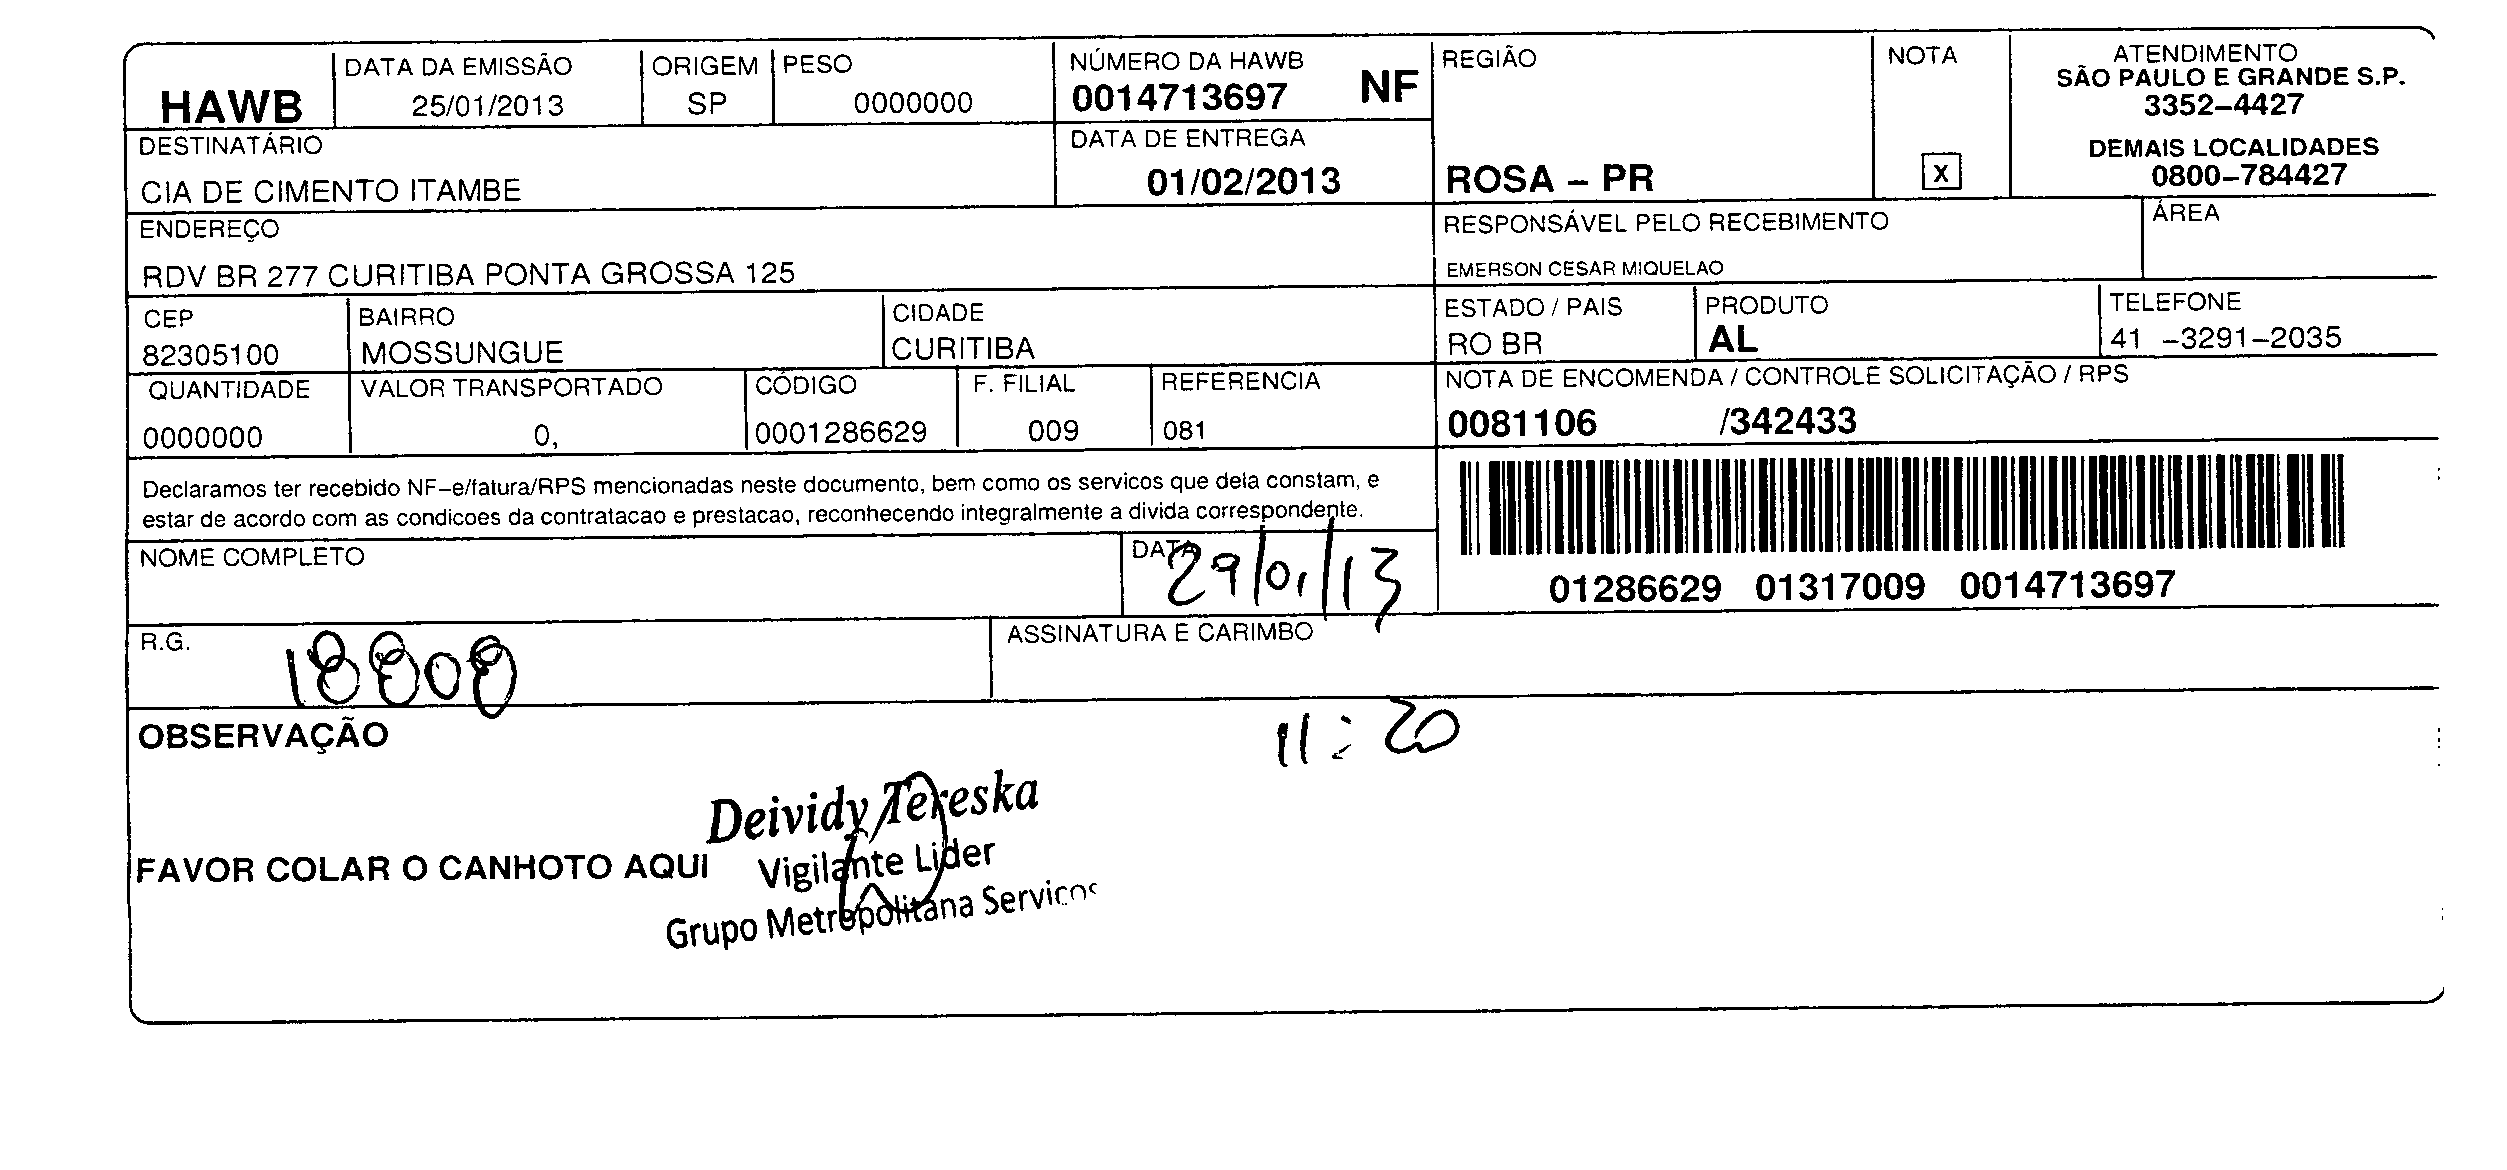 HAWB
DATA DA EMISSÃO
25/01/2013
ORIGEM
SP
PESO
0000000
NÚMERO DA HAWB
0014713697 NF
REGIÃO
ROSA – PR
NOTA
X
ATENDIMENTO
SÃO PAULO E GRANDE S.P.
3352–4427
DEMAIS LOCALIDADES
0800–784427
DESTINATÁRIO
CIA DE CIMENTO ITAMBE
DATA DE ENTREGA
01/02/2013
ENDEREÇO
RDV BR 277 CURITIBA PONTA GROSSA 125
RESPONSÁVEL PELO RECEBIMENTO
EMERSON CESAR MIQUELAO
ÁREA
CEP
82305100
BAIRRO
MOSSUNGUE
CIDADE
CURITIBA
ESTADO / PAIS
RO BR
PRODUTO
AL
TELEFONE
41 –3291–2035
QUANTIDADE
0000000
VALOR TRANSPORTADO
0,
CÓDIGO
0001286629
F. FILIAL
009
REFERENCIA
081
NOTA DE ENCOMENDA / CONTROLE SOLICITAÇÃO / RPS
0081106 /342433
Declaramos ter recebido NF–e/fatura/RPS mencionadas neste documento, bem como os servicos que dela constam, e
estar de acordo com as condicoes da contratacao e prestacao, reconhecendo integralmente a divida correspondente.
01286629 01317009 0014713697
NOME COMPLETO
DATA
29/01/13
R.G.
18808
ASSINATURA E CARIMBO
OBSERVAÇÃO
11:20
Deividy Tereska
FAVOR COLAR O CANHOTO AQUI
Vigilante Lider
Grupo Metropolitana Servicos